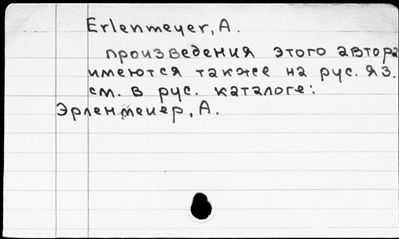 Erlenmeyer, A.
произведения этого автора
имеются также на рус. яз.
см. в рус. каталоге:
Эрленмеиер, А.